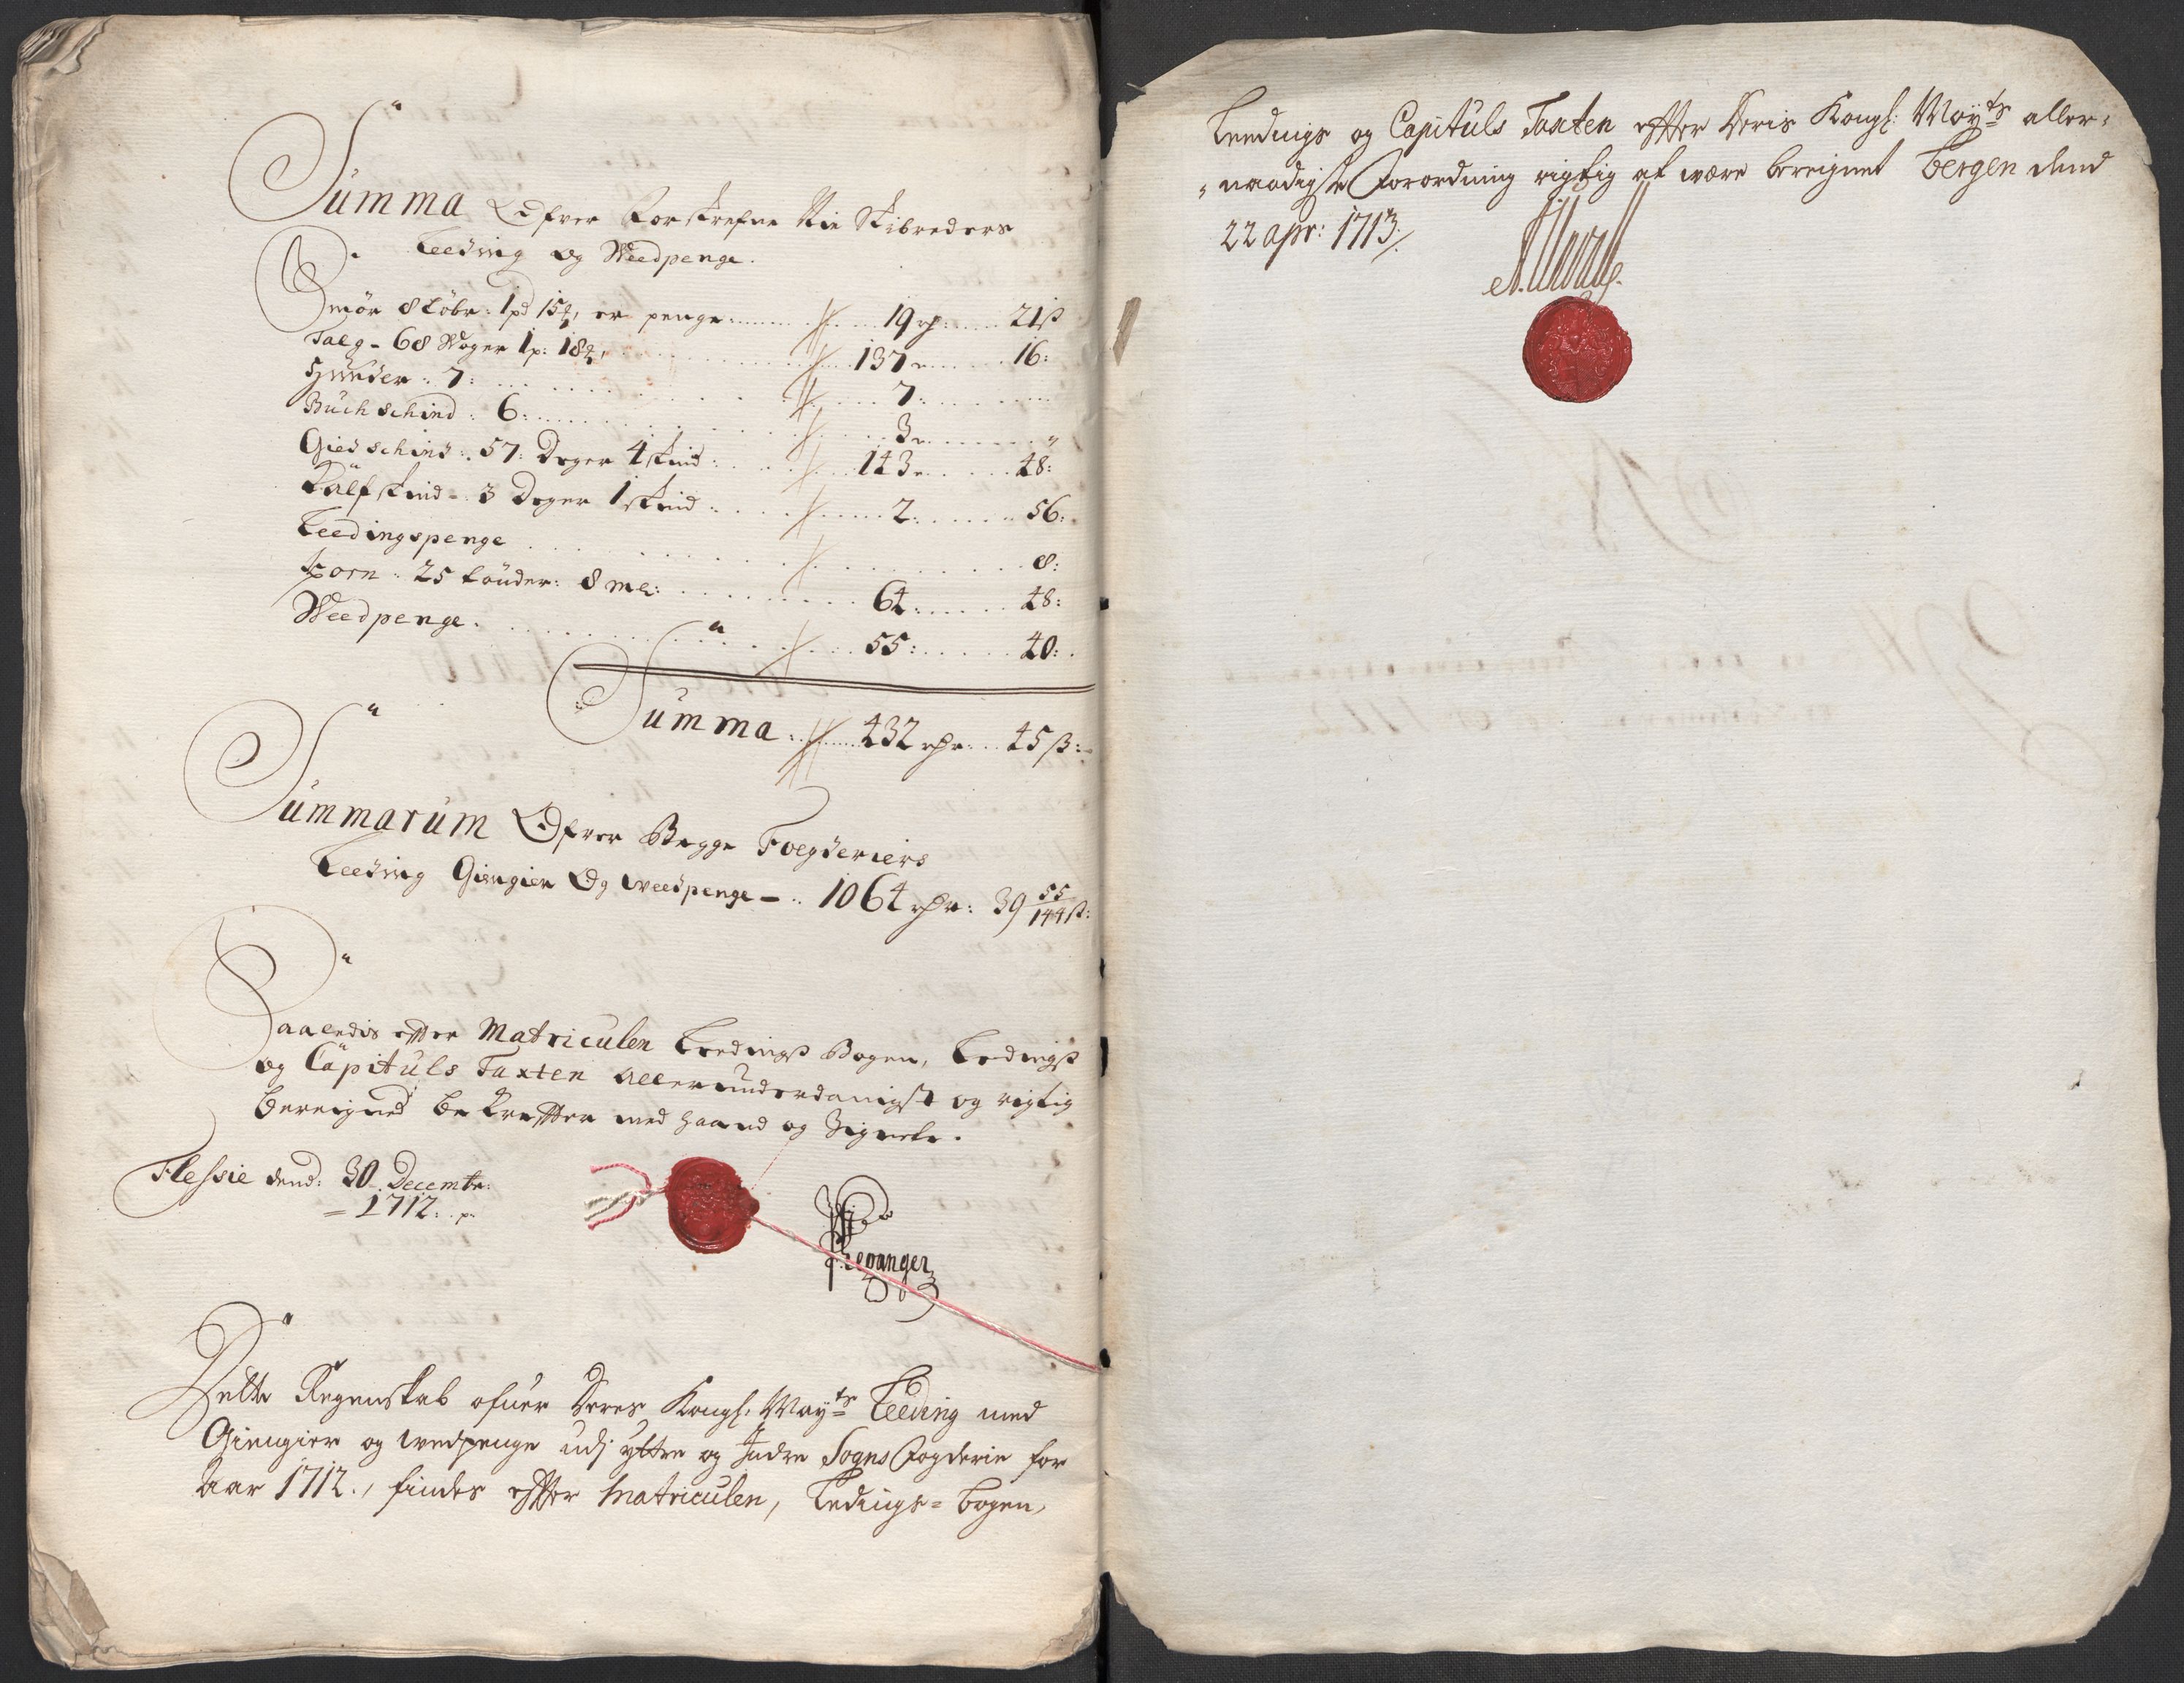 Summa Ofver Forskrefne Nie Skibreders
Leeding og Weedpenge.
Smör 8 Löbr: 1 pd 15 , er penge 19 rd 21 ß
Talg - 68 Woger 1 p: 18 , 137 16:
Huuder : 7: 7:
Buchschind : 6: 3 "
Giedschind : 57: Deger 4 skind : 143 48:
Kalfskind - 3 Deger 1 skind : 2 56:
Leedingspenge 8:
Korn : 25 tönder : 8 me: 64 48:
Weedpenge. 55: 40:
Summa 432 rdr 45 ß:
Summarum Ofver Begge Foegderiers
Leeding Giengier Og weedpenge - 1064 rdr: 39 55/144 ß:
Saaledis effter Matriculen Leedings Bogen, Ledings
og Capituls Taxten allerunderdanigst og rigtig
bereigned bekreffter med haand og Signete.
Flessie dend: 30 Decembr:
1712:
Leganger
Dette Regenskab ofuer Deres Kongl: Mayts Leeding med
Giengier og wedpenge udj yttre og Indre Sogns Fogderie for
Aar 1712, findes effter Matriculen, Ledings-bogen,
Leedings og Capituls Taxten effter Deris Kongl: Mayts aller-
naadigste Forordning rigtig at være bereignet Bergen dend
22 apr: 1713